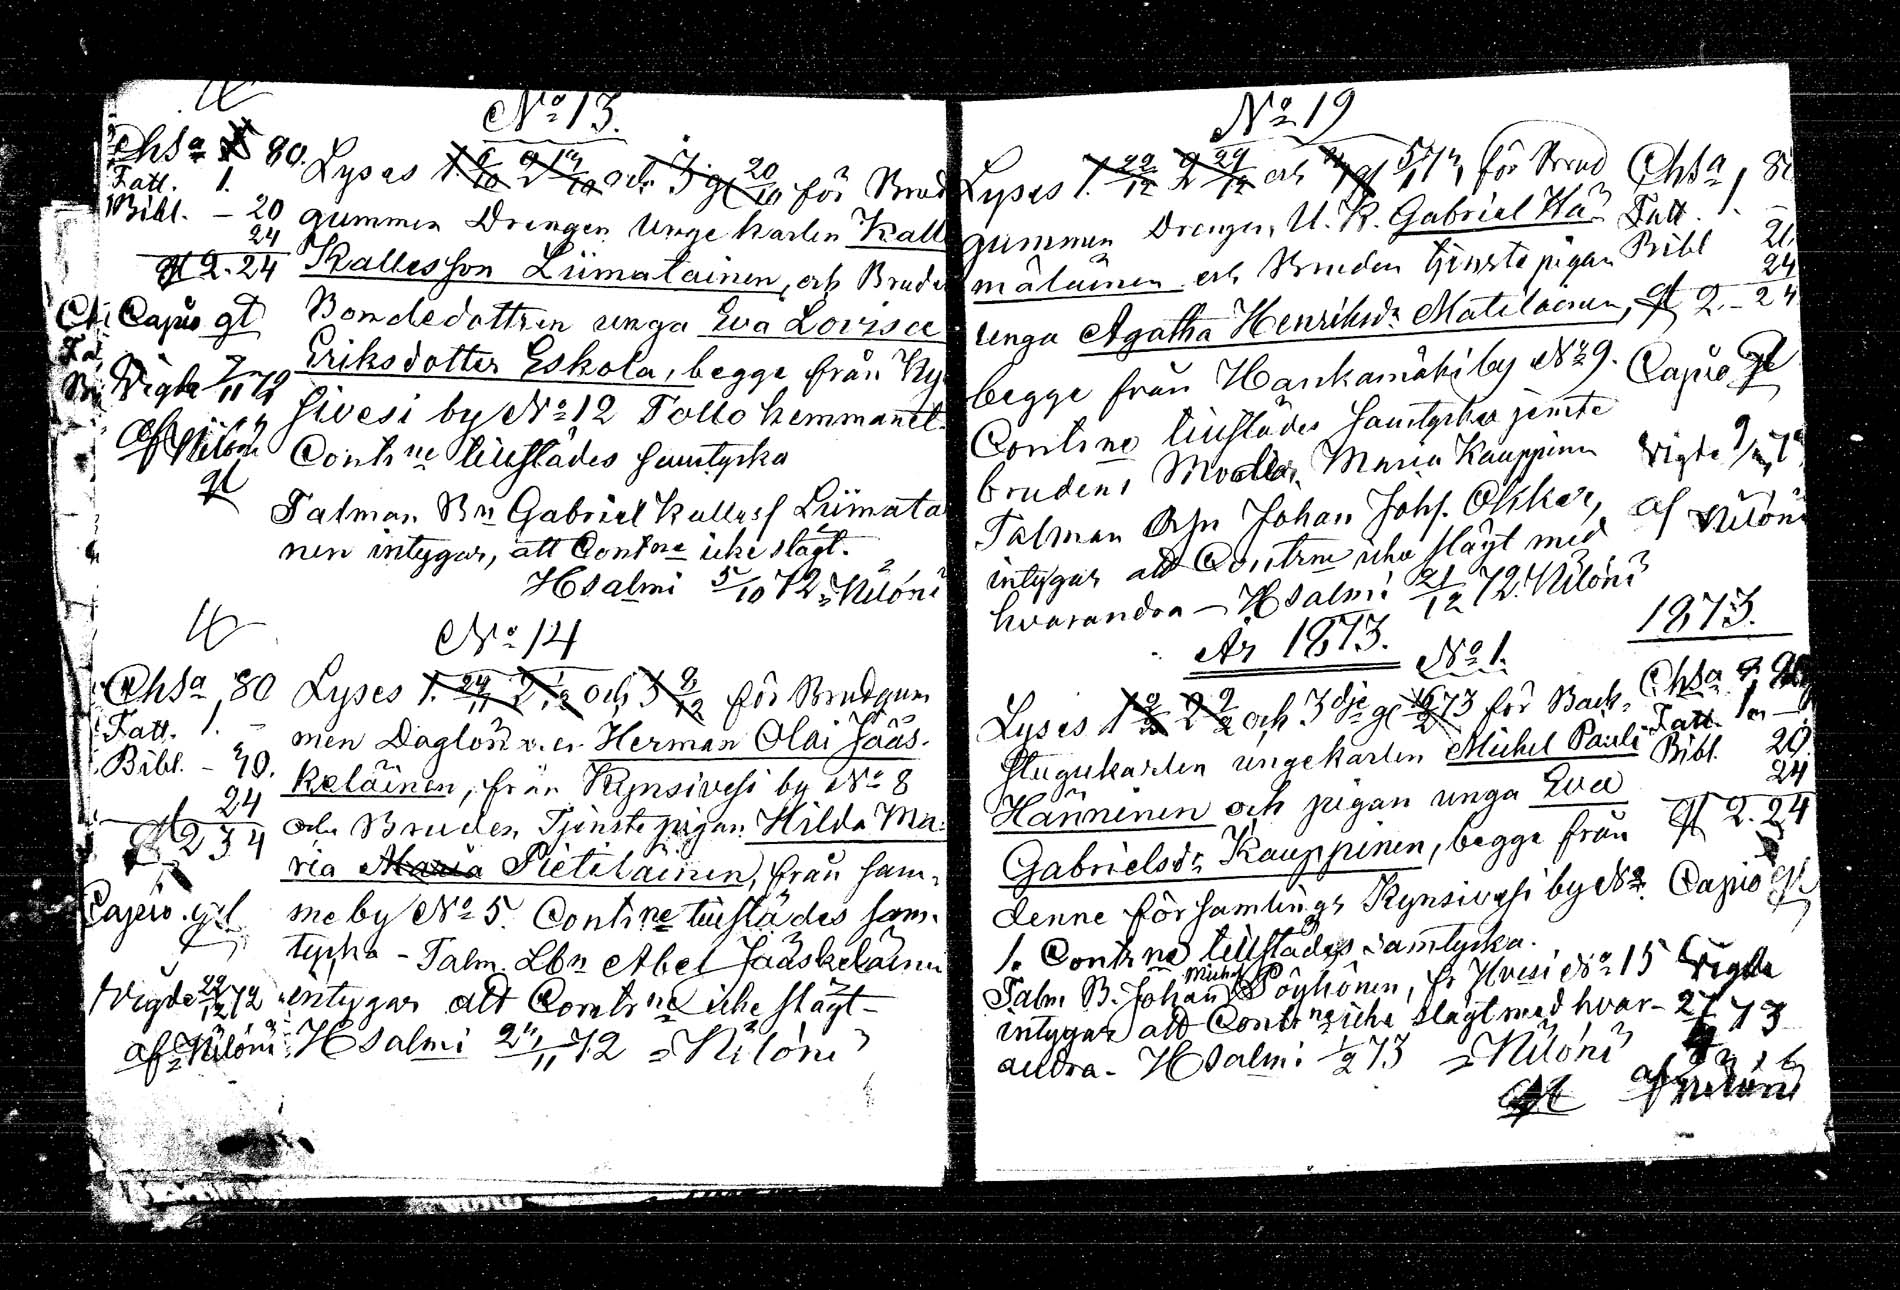 No 13.
Chsa 80.
Fatt. 1.
Bibl. - 20
24
2.24
Capio gt
Vigde 7/11 72
af Nilóni
Lyses 1. 6/10 2 13/10 och 3 g 20/10 för Brud
gummen Drengen Unge karlen Kalle
Kallesson Liimatainen, och Bruden
Bondedottren unga Eva Lovisa
Eriksdotter Eskola, begge från Ky
sivesi by No 12 Tollo hemmanet.
Contrne tillstädes samtycka
Talman Bn Gabriel Kallesf Liimata
nen intygar, att Contrne icke slägt.
Hsalmi 5/10 72 Nilóni
No 14
Chsa 80
Fatt. 1. -
Bibl. - 30.
24
2 34
Capio gt
Vigde 22/12 72
af Nilóni
Lyses 1. 24/11 2 1/12 och 3 8/12 för Brudgum
men Daglön Herman Olai Jääs-
keläinen, från Kynsivesi by No 8
och Bruden Tjenstepigan Hilda Ma-
ria Maria Pietiläinen, från sam-
me by No 5. Contrne tillstädes sam-
tycka - Talm. Lbn Abel Jääskeläinen
intygar att Contrne icke slägt -
Hsalmi 72 Nilóni
No 19
Lyses 1. 22/12 2 29/12 och 3 g 5/1 73 för Brud
gummen Drengen, U. K. Gabriel Hä-
mäläinen och Bruden tjenstepigan
unga Agatha Henriksdr Matilainen,
begge från Hankamäki by No 9.
Contrne tillstädes samtycka jemte
brudens Moder, Maria Kauppinen
Talman Johan Johs. Okkar,
intygar att Contrne icke slägt med
hvarandra - Hsalmi 21/12 72. Nilóni
Chsa 80
Fatt. 1. -
Bibl 20.
24
2 - 24
Capio gt
Vigde
af Nilóni
År 1873.
1873.
No 1.
Lyses 1 2/2 2 9/2 och 3dje g 16/2 73 för Back-
stugukarlen ungekarlen Michel Pauls
Hänninen och pigan unga Eva
Gabrielsdr Kauppinen, begge från
denne församlings Kynsivesi by No
1. Contrne tillstädes samtycka.
Talm B. Johan Michel Pöyhönen, fr Hvesi No 15
intygar att Contrne icke slägt med hvar-
andra - Hsalmi 1/2 73 Nilóni
Chsa
Fatt. 1 -
Bibl. 20.
24
2.24
Capio gt
Vigde
27 73
af Nilóni